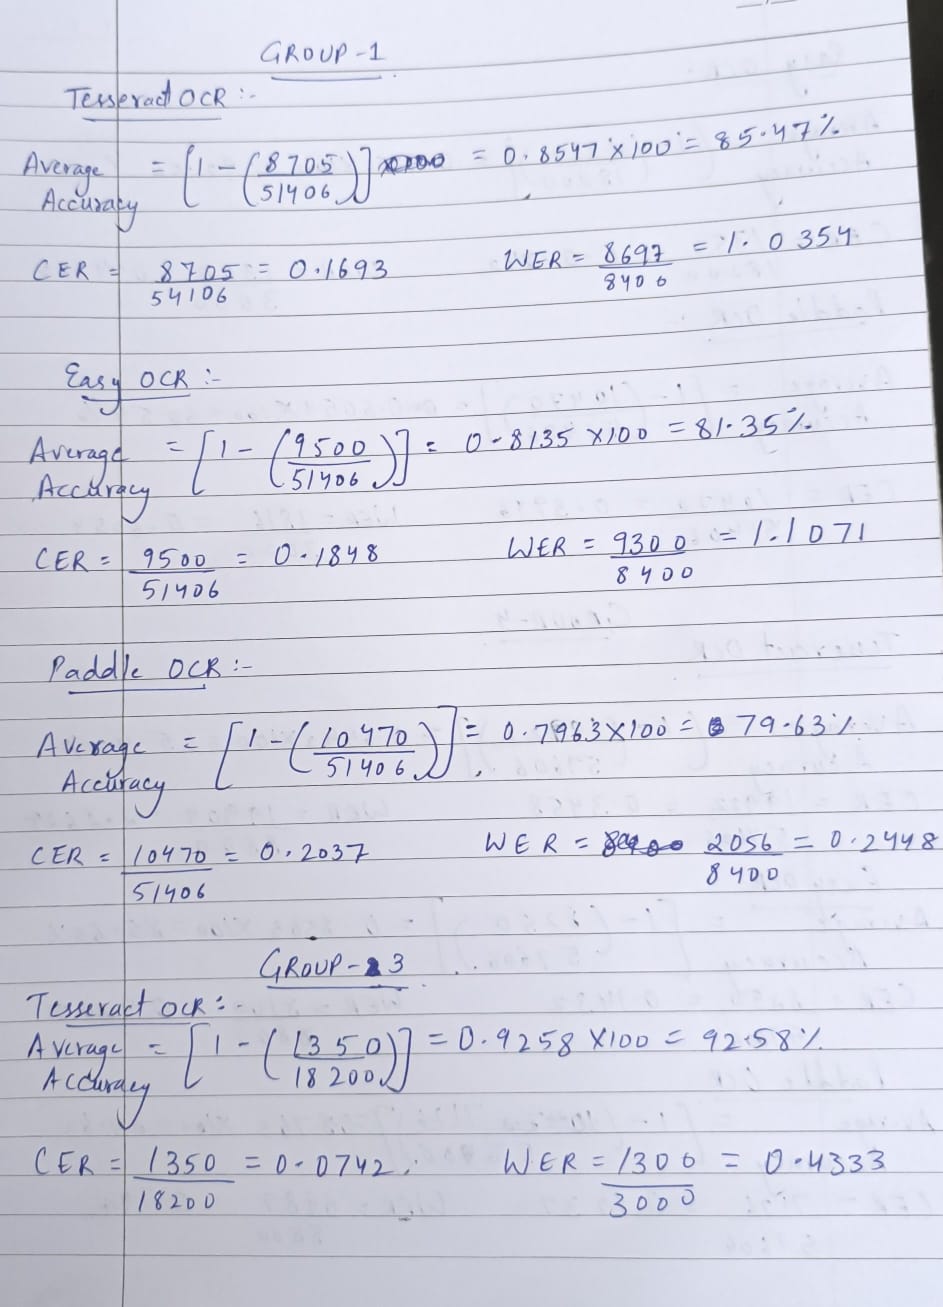 GROUP-1
Tesseract OCR :-
Average Accuracy = [1-(8705/51406)] = 0.8547 × 100 = 85.47%
CER = 8705/54106 = 0.1693 WER = 8697/8400 = 1.0354
Easy OCR :-
Average Accuracy = [1-(9500/51406)] = 0.8135 × 100 = 81.35%
CER = 9500/51406 = 0.1848 WER = 9300/8400 = 1.1071
Paddle OCR :-
Average Accuracy = [1-(10470/51406)] = 0.7963 × 100 = 79.63%
CER = 10470/51406 = 0.2037 WER = 2056/8400 = 0.2448
GROUP-3
Tesseract OCR :-
Average Accuracy = [1-(1350/18200)] = 0.9258 × 100 = 92.58%
CER = 1350/18200 = 0.0742 WER = 1300/3000 = 0.4333